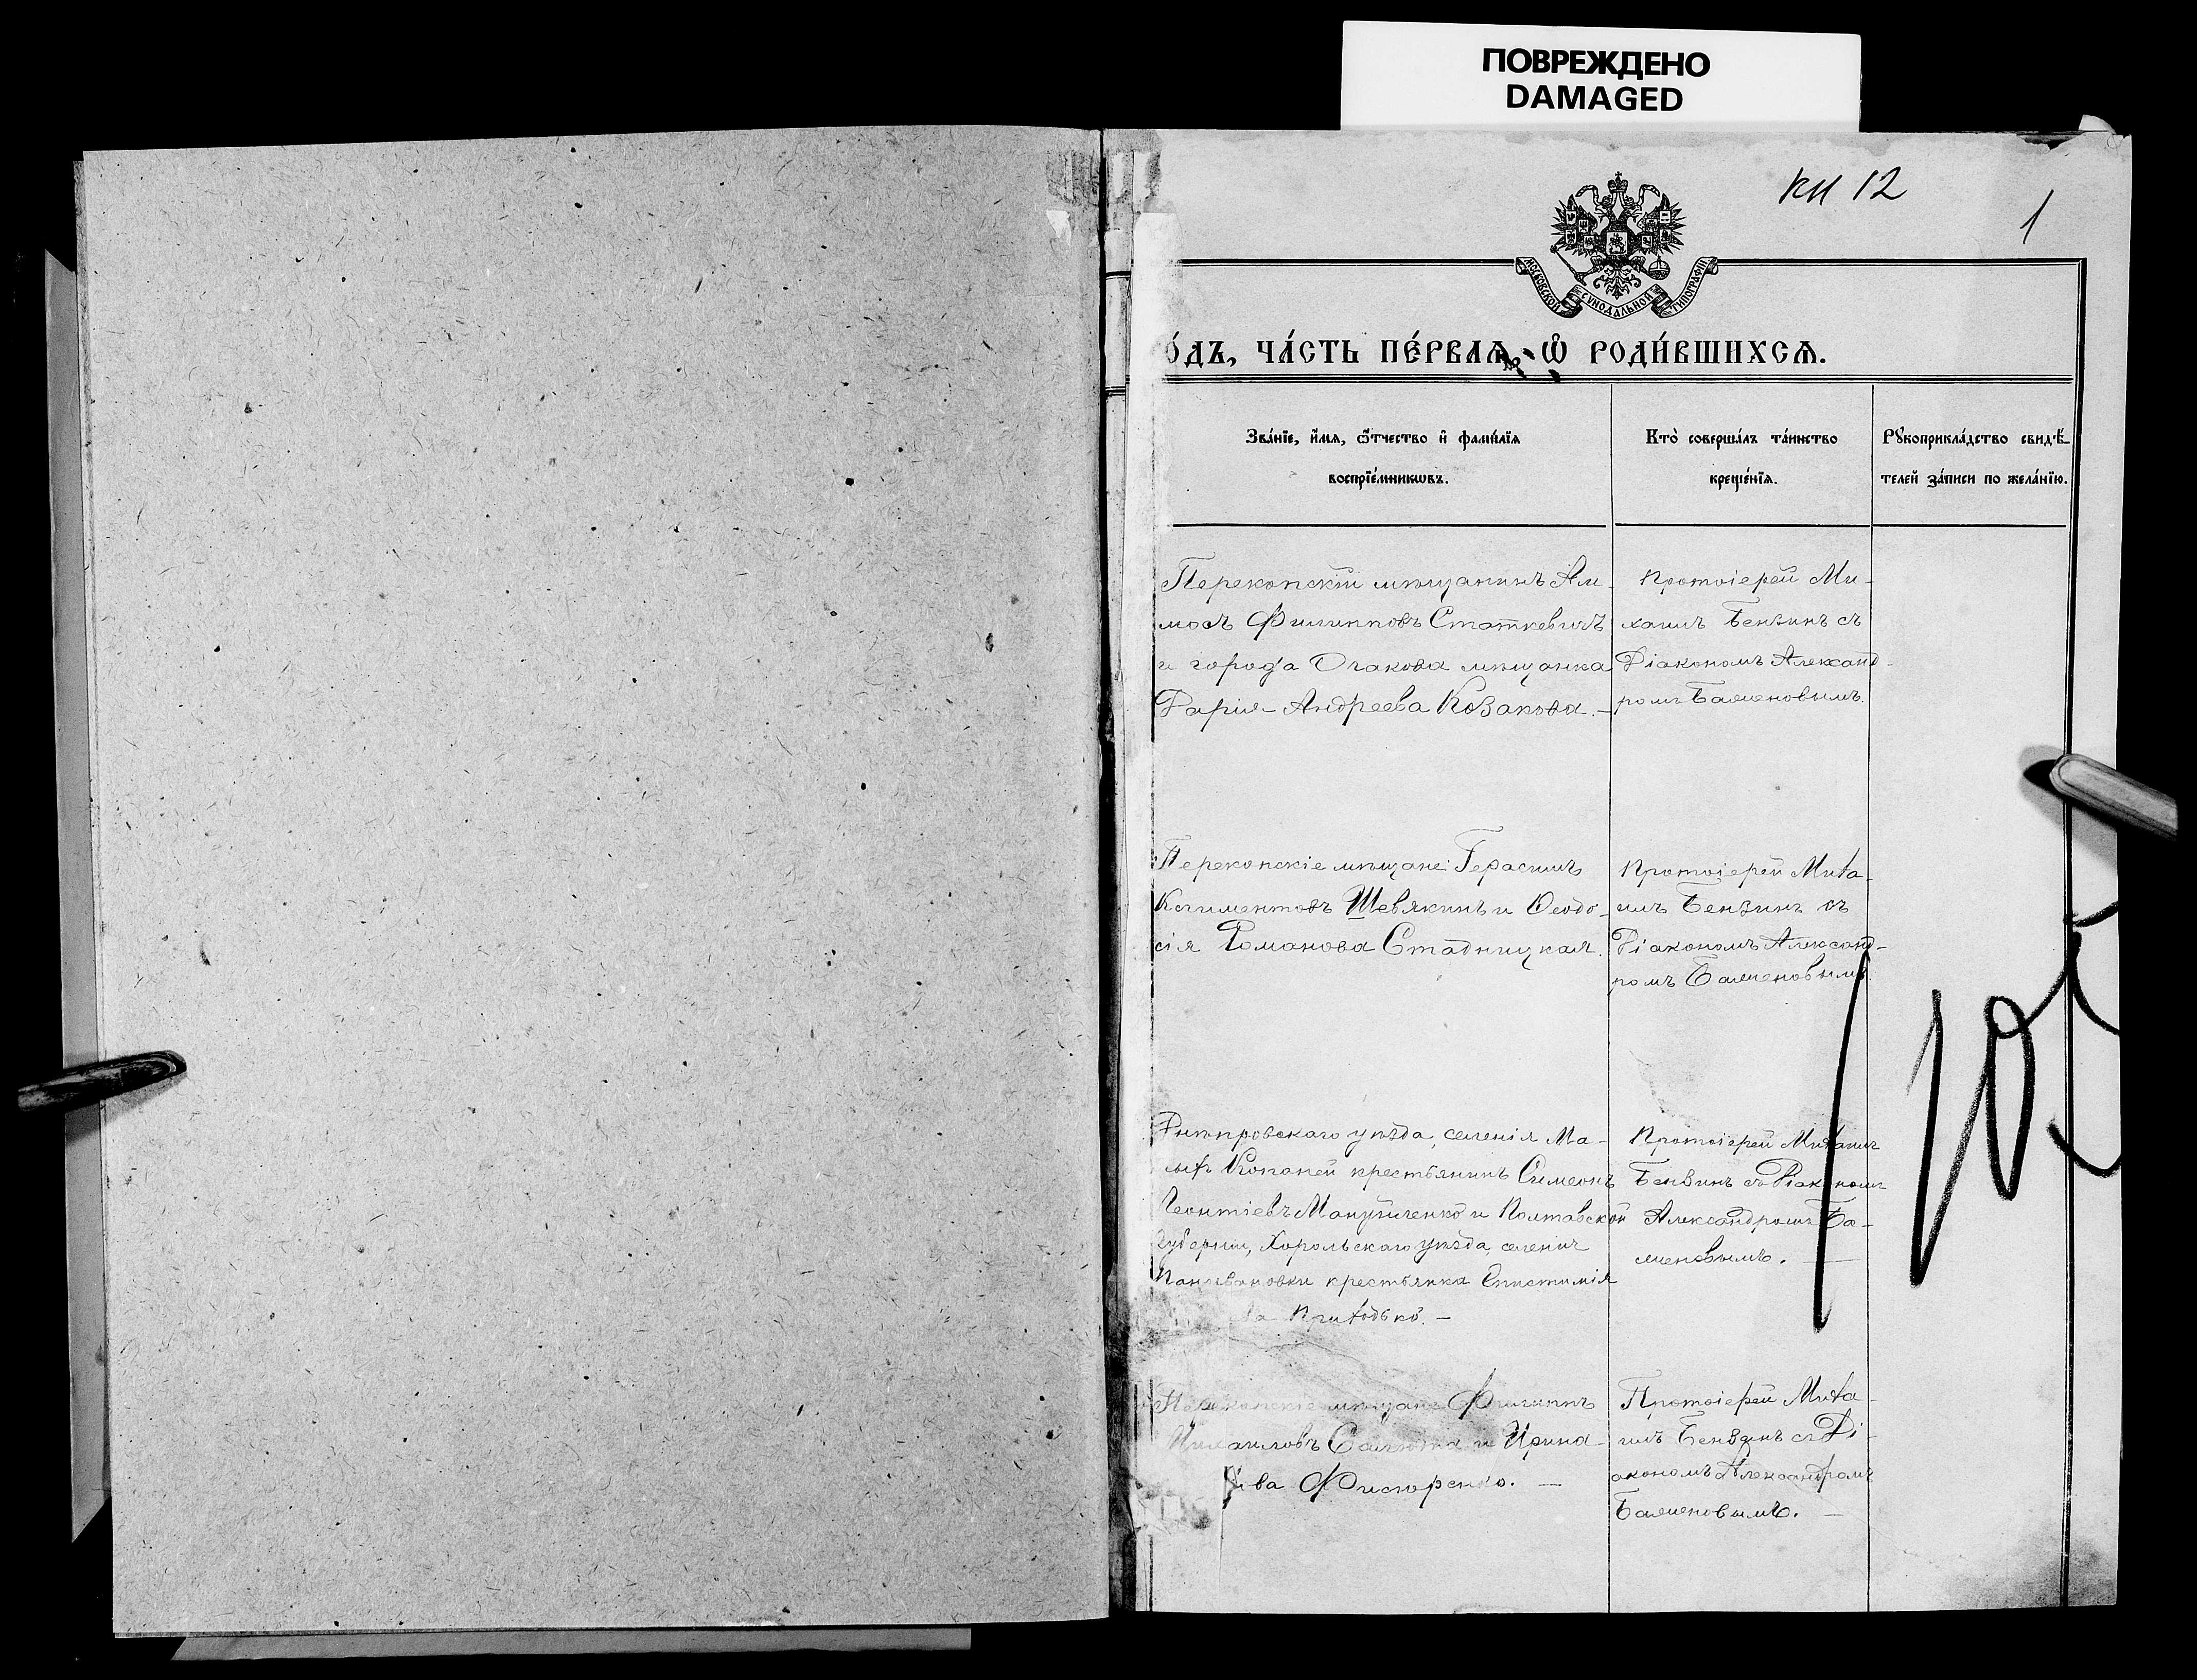 ПОВРЕЖДЕНО
DAMAGED
КН 12
1
МОСКОВСКОЙ СѴНОДАЛЬНОЙ ТИПОГРАФІИ
О́ДЪ, ЧА́СТЬ ПЕ́РВАѦ, Ѡ҆ РОДИ́ВШИХСѦ.
Зва́нїе, и҆́мѧ, ѻ҆́тчество и҆ фами́лїѧ
воспрїе́мникѡвъ.
Кто̀ соверша́лъ та́инство
креще́нїѧ.
Рꙋкоприкла́дство свидѣ́-
телей за́писи по жела́нїю.
Перекопскій мѣщанинъ Ам-
мосъ Филипповъ Статкевичъ
и города Очакова мѣщанка
Дарія Андреева Козакова. –
Протоіерей Ми-
хаилъ Бензинъ съ
Діакономъ Александ-
ромъ Баженовымъ.
Перекопскіе мѣщане: Герасимъ
Климентовъ Шевякинъ и Ѳеодо-
сія Романова Стадницкая.
Протоіерей Миха-
илъ Бензинъ съ
Діакономъ Александ-
ромъ Баженовымъ.
Днѣпровскаго уѣзда, селенія Ма-
лыхъ Копаней крестьянинъ Симеонъ
Леонтіевъ Мануйленко и Полтавской
губерніи, Хорольскаго уѣзда, селенія
Панивановки крестьянка Епистимія
ва Приходько. –
Протоіерей Михаилъ
Бензинъ съ Діакономъ
Александромъ Ба-
женовымъ. –
Перекопскіе мѣщане Филиппъ
Михаиловъ и Ирина
ва –
Протоіерей Миха-
илъ Бензинъ съ Ді-
акономъ Александромъ
Баженовымъ. –